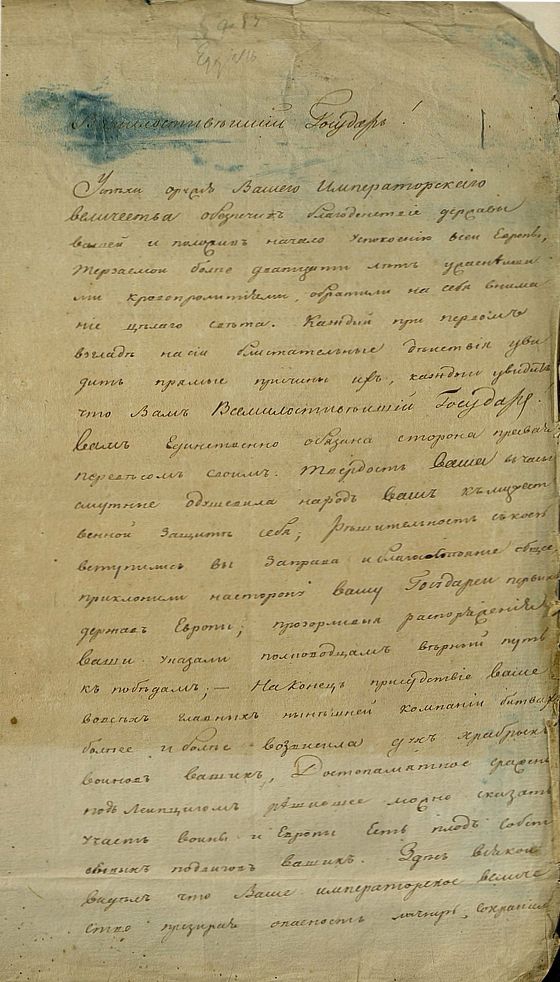 Всемилостивѣишiй Государь!
Успѣхи оружiя Вашего Императорскаго
величества обезпечивъ благоденствiе державы
вашей и положивъ начало успокоенiю всей Европы,
терзаемой болѣе дватцати лѣтъ ужасными
ми кровопролитiями, обратили на себя внима
нiе цѣлаго свѣта. Каждый при первомъ
взглядѣ на сiи блистательные дѣйствiя уви
дитъ прямые причины ихъ, каждый увидитъ
что Вамъ Всемилостивѣишiй Государь.
вамъ единственно обязана сторона
перевѣсомъ своимъ. Твердость Ваша в часы
смутные одушевила народъ вашъ къ мужест
венной защитѣ себя; Рѣшительность съ коей
вступились вы за права и благосостоянiе
приклонили на сторону вашу Государей первых
державъ Европы; прозорливыя распоряженiя
ваши указали полководцамъ вѣрный путь
къ побѣдамъ; — Наконецъ присудствiе ваше
во всѣхъ главныхъ нынѣшней компанiи битвах
болѣе и болѣе возвысила духъ храбрыхъ
воиновъ вашихъ, Достопамятное сражен
подъ Леипцигомъ рѣшившее можно сказать
участь воины и Европы есть плодъ собст
вѣнныхъ подвиговъ вашихъ. Здѣсь всякой
видѣлъ что Ваше императорское величе
ство презирая опасность личную, сохраняли